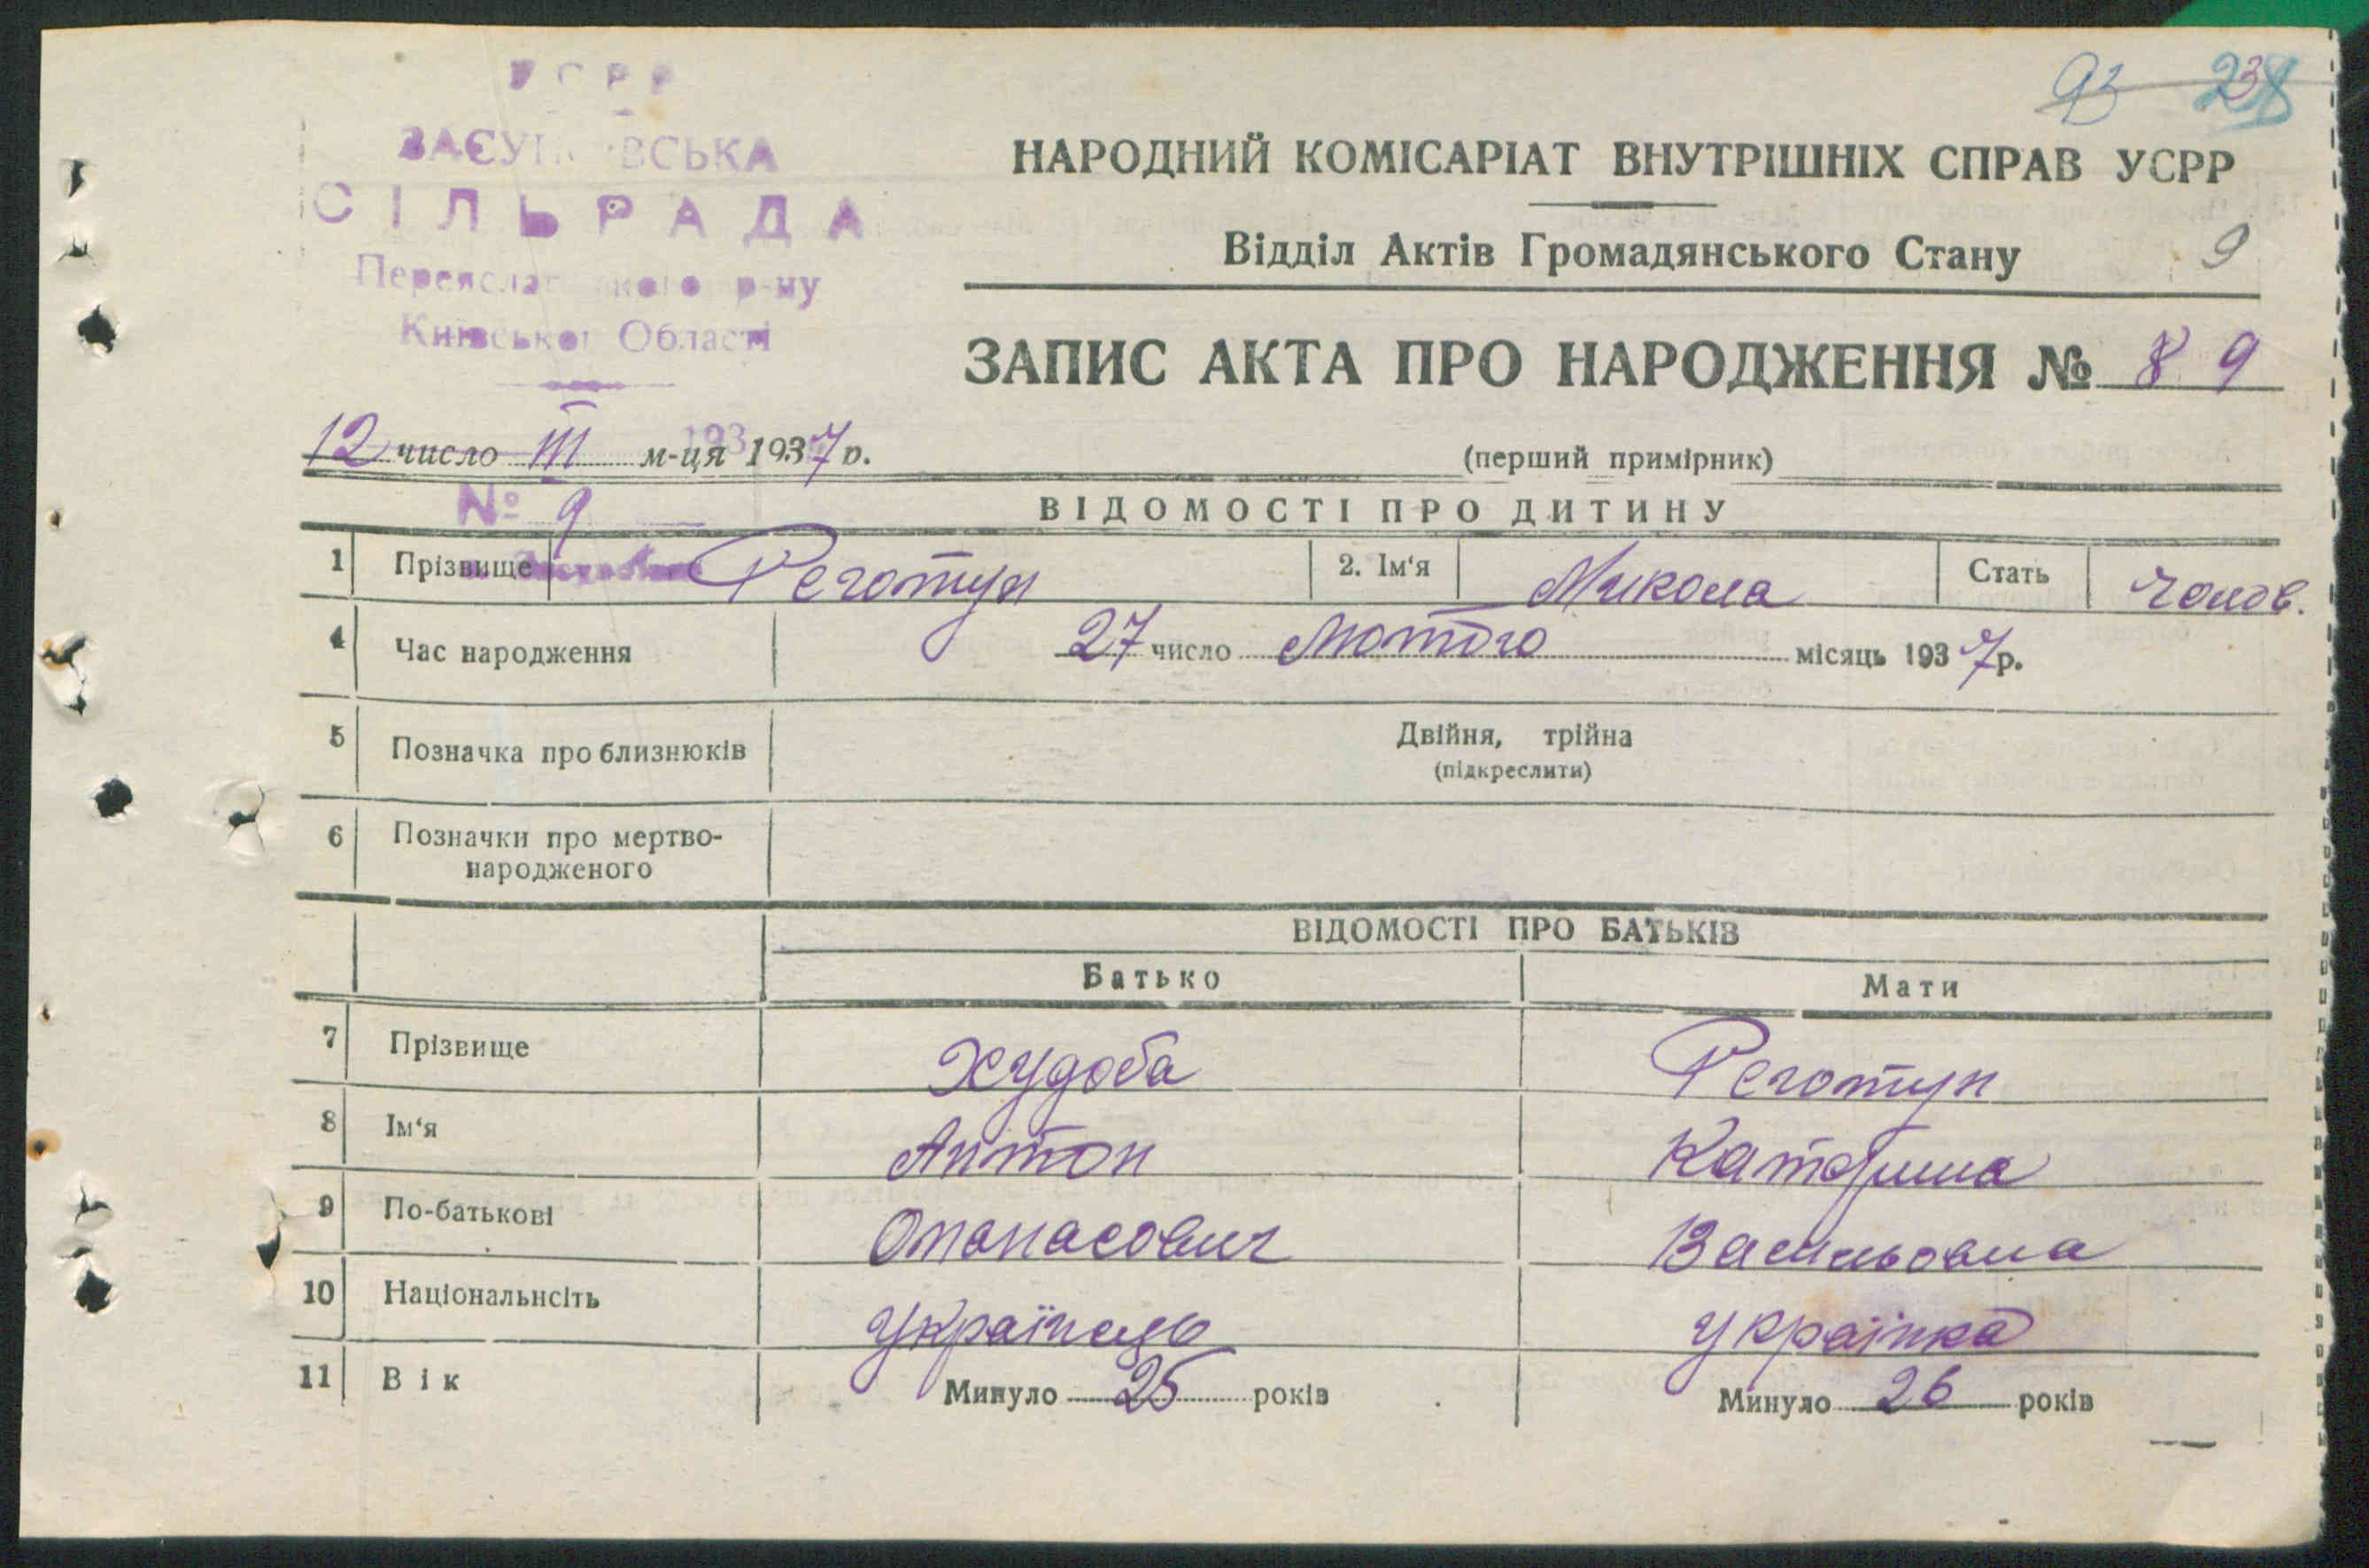 УСРР
93 238
ЗАЄУ ВСЬКА
СІЛЬРАДА
НАРОДНИЙ КОМІСАРІАТ ВНУТРІШНІХ СПРАВ УСРР
Київської Області
Відділ Актів Громадянського Стану 9
ЗАПИС АКТА ПРО НАРОДЖЕННЯ № 89
12 число III м-ця 1937 р.
(перший примірник)
№ 9
ВІДОМОСТІ ПРО ДИТИНУ
1 Прізвище Реготун 2. Ім'я Микола Стать Чолов.
4 Час народження 27 число Лютого місяць 1937 р.
5 Позначка про близнюків Двійня, трійна
(підкреслити)
6 Позначки про мертво-
народженого
ВІДОМОСТІ ПРО БАТЬКІВ
Батько Мати
7 Прізвище Худоба Реготун
8 Ім'я Антон Катерина
9 По-батькові Опанасович Васильовна
10 Національнсіть Українець Українка
11 Вік Минуло 25 років Минуло 26 років